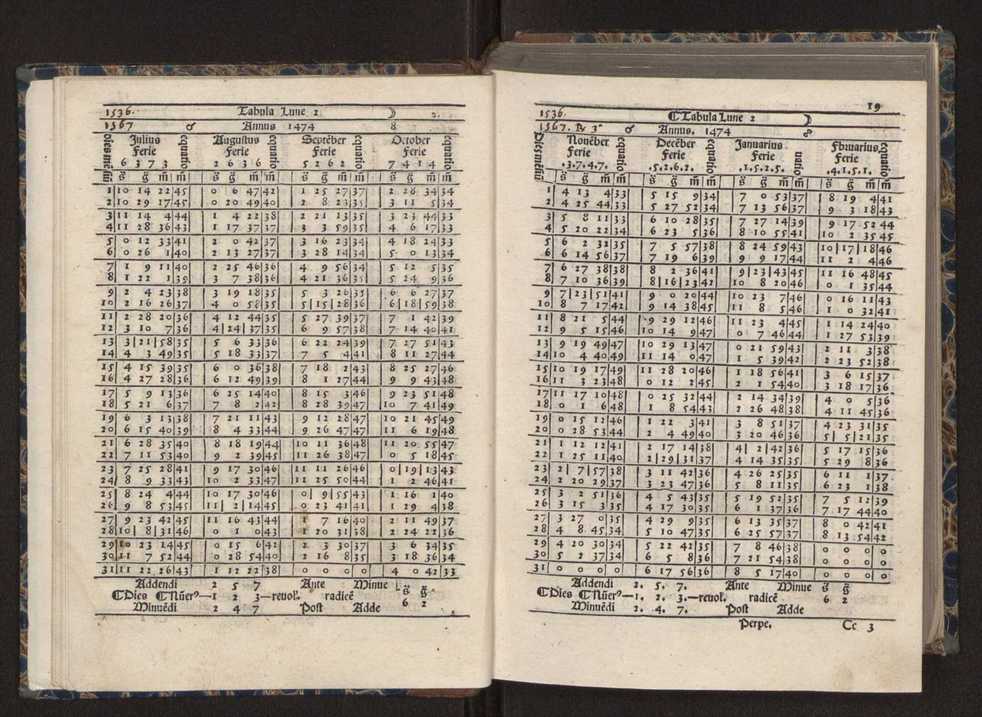 1536. Tabula Lune 2 ☽ 2.
1567 ♂ Annus 1474 8
Dies mēsiū Julius equatio Augustus equatio Septēber equatio October equatio
Ferie Ferie Ferie Ferie
6 3 7 3 2 6 3 6 5 1 6 2 7 4 1 4
s̄ ḡ m̄ m̄ s̄ ḡ m̄ m̄ s̄ ḡ m̄ m̄ s̄ ḡ m̄ m̄
1 10 14 22 45 0 6 47 42 1 25 27 37 2 28 34 34
2 10 29 17 45 0 20 49 40 2 8 23 35 3 11 5 34
3 11 14 4 44 1 4 22 38 2 21 13 35 3 23 44 33
4 11 28 36 43 1 17 37 37 3 3 59 35 4 6 17 33
5 0 12 33 41 2 0 42 37 3 16 23 34 4 18 24 33
6 0 26 1 40 2 13 27 37 3 28 14 34 5 0 13 34
7 1 9 11 40 2 25 46 36 4 9 56 34 5 12 5 35
8 1 22 1 39 3 7 38 36 4 21 36 35 5 24 9 36
9 2 4 23 38 3 19 18 35 5 3 26 35 6 6 27 37
10 2 16 26 37 4 0 58 35 5 15 28 36 6 18 59 38
11 2 28 20 36 4 12 44 35 5 27 39 37 7 1 42 39
12 3 10 7 36 4 24 37 35 6 9 57 38 7 14 40 41
13 3 21 58 35 5 6 33 36 6 22 24 39 7 27 51 43
14 4 3 49 35 5 18 33 37 7 5 4 41 8 11 27 44
15 4 15 39 35 6 0 36 38 7 18 2 43 8 25 27 46
16 4 27 28 36 6 12 49 39 8 1 27 44 9 9 43 48
17 5 9 13 36 6 25 14 40 8 15 3 46 9 23 51 48
18 5 21 6 37 7 8 2 42 8 28 39 47 10 7 41 49
19 6 3 13 38 7 21 11 43 9 12 28 47 10 21 45 49
20 6 15 40 39 8 4 33 44 9 26 47 47 11 6 19 48
21 6 28 35 40 8 18 19 44 10 11 36 48 11 20 55 47
22 7 11 53 40 9 2 39 45 11 26 38 47 0 5 18 45
23 7 25 28 41 9 17 30 46 11 11 26 46 0 19 13 43
24 8 9 33 43 10 2 33 47 11 25 50 44 1 2 46 41
25 8 24 4 44 10 17 30 46 0 9 55 43 1 16 1 40
26 9 8 53 45 11 2 14 45 0 23 41 41 1 29 4 38
27 9 23 42 45 11 16 43 44 1 7 16 40 2 11 49 37
28 10 8 31 46 0 1 0 43 1 20 31 38 2 24 22 36
29 10 23 14 45 0 15 6 42 2 3 30 37 3 6 34 35
30 11 7 52 44 0 28 54 40 2 16 8 35 3 18 56 34
31 11 22 26 43 1 12 22 38 0 0 0 0 4 0 42 33
Addendi 2 5 7 Ante Minue s̄ ḡ
Dies Nūerꝰ—1 2 3—reuol. radicē 6 2
Minuēdi 2 4 7 Post Adde
19
1536. Tabula Lune 2 ☽
1567. Pẏ 3 ♂ Annus. 1474 8
Dies mēsiū Nouēber equatio Decēber equatio Januarius equatio Fbruarius equatio
Ferie Ferie Ferie Ferie
.3.7.4.7. .5.2.6.2. .1.5.2.5. .4.1.5.1.
s̄ ḡ m̄ m̄ s̄ ḡ m̄ m̄ s̄ ḡ m̄ m̄ s̄ ḡ m̄ m̄
1 4 13 4 33 5 15 9 34 7 0 53 37 8 19 4 41
2 4 25 44 33 5 27 52 34 7 13 56 37 9 3 18 43
3 5 8 11 33 6 10 28 35 7 27 14 39 9 17 52 44
4 5 20 22 34 6 23 5 36 8 10 55 41 10 2 35 45
5 6 2 32 35 7 5 57 38 8 24 59 43 10 17 18 46
6 6 14 56 37 7 19 6 39 9 9 17 44 11 2 4 46
7 6 27 38 38 8 2 36 41 9 23 43 45 11 16 48 45
8 7 10 36 39 8 16 23 42 10 8 20 46 0 1 35 44
9 7 23 51 41 9 0 20 44 10 23 7 46 0 16 11 43
10 8 7 17 42 9 14 38 45 11 8 5 46 1 0 32 41
11 8 21 5 44 9 29 12 46 11 23 4 45 1 14 24 40
12 9 5 15 46 10 14 9 47 0 7 46 44 1 27 53 39
13 9 19 49 47 10 29 13 47 0 21 59 43 2 11 3 38
14 10 4 40 49 11 14 0 47 1 5 39 42 2 23 52 38
15 10 19 17 49 11 28 20 46 1 18 56 41 3 6 15 37
16 11 3 23 48 0 12 2 45 2 1 54 40 3 18 17 36
17 11 17 10 48 0 25 32 44 2 14 34 39 4 0 5 36
18 0 1 6 48 1 8 54 43 2 26 48 38 4 11 45 36
19 0 15 12 46 1 22 3 41 3 8 51 37 4 23 31 35
20 0 28 53 44 2 4 49 40 3 20 46 36 5 5 21 35
21 1 12 12 41 2 17 14 38 4 2 42 36 5 17 15 36
22 1 25 11 40 2 29 31 37 4 14 35 35 5 29 8 36
23 2 7 57 38 3 11 42 36 4 26 25 35 6 11 1 37
24 2 20 29 37 3 23 47 36 5 8 11 35 6 23 1 38
25 3 2 51 36 4 5 43 35 5 19 52 35 7 5 12 39
26 3 15 3 35 4 17 30 35 6 1 37 36 7 17 44 40
27 3 27 0 35 4 29 9 35 6 13 35 37 8 0 42 41
28 4 8 45 34 5 10 47 35 6 25 57 37 8 13 54 42
29 4 20 30 34 5 22 42 35 7 8 46 38 0 0 0 0
30 5 2 37 34 6 5 8 36 7 21 54 38 0 0 0 0
31 0 0 0 0 6 17 56 36 8 5 17 40 0 0 0 0
Addendi 2. 5. 7. Ante Minue s̄ ḡ
Dies Nūerꝰ—1. 2. 3.—reuol. radicē 6 2
Minuēdi 2. 4. 7. Post Adde
Perpe. Cc 3